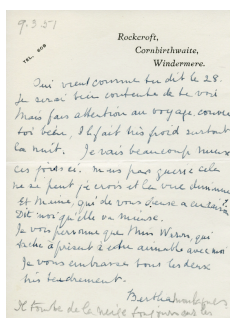 9.3.51
TEL. 608
Rockcroft,
Cornbirthwaite,
Windermere.
Oui vient comme tu dit le 28.
Je serai bien contente de te voir
Mais fais attention au voyage, couvre
toi bien, il fait très froid surtout
la nuit. Je vais beaucoup mieux
ces jours ci. mais pas guerre cela
ne se peut je crois et la vue diminue
Et Mama, qui de vous deux a
Dit moi qu'elle va mieux.
Je vois personne que Miss
à présent à être aimable avec moi
Je vous embrasse tous les deux
très tendrement.
Bertha
Il tombe de la neige toujours